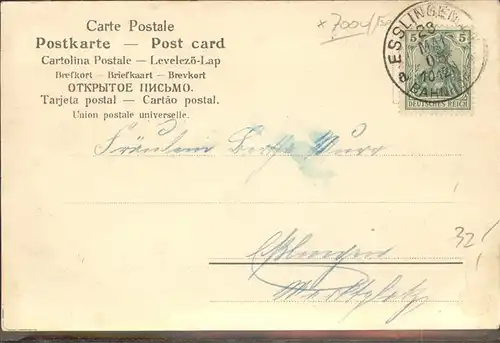 Carte Postale
Postkarte — Post card
Cartolina Postale — Levelező-Lap
Brefkort — Briefkaart — Brevkort
ОТКРЫТОЕ ПИСЬМО.
Tarjeta postal — Cartão postal.
Union postale universelle.
ESSLINGEN
BAHN
5 5
DEUTSCHES REICH
Fräulein
Eßlingen
Marktplatz
32